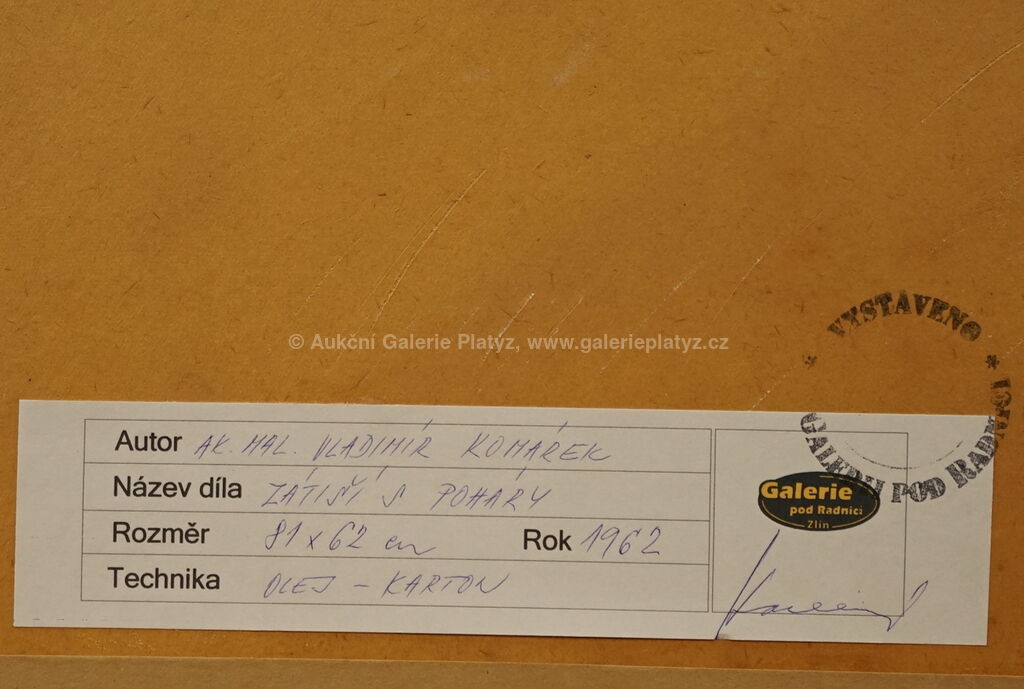 VYSTAVENO
GALERII POD RADNICÍ
© Aukční Galerie Platýz, www.galerieplatyz.cz
Autor AK. MAL. VLADIMÍR KOMÁREK
Název díla ZÁTIŠÍ S POHÁRY
Rozměr 81 x 62 cm Rok 1962
Technika OLEJ - KARTON
Galerie
pod Radnicí
Zlín